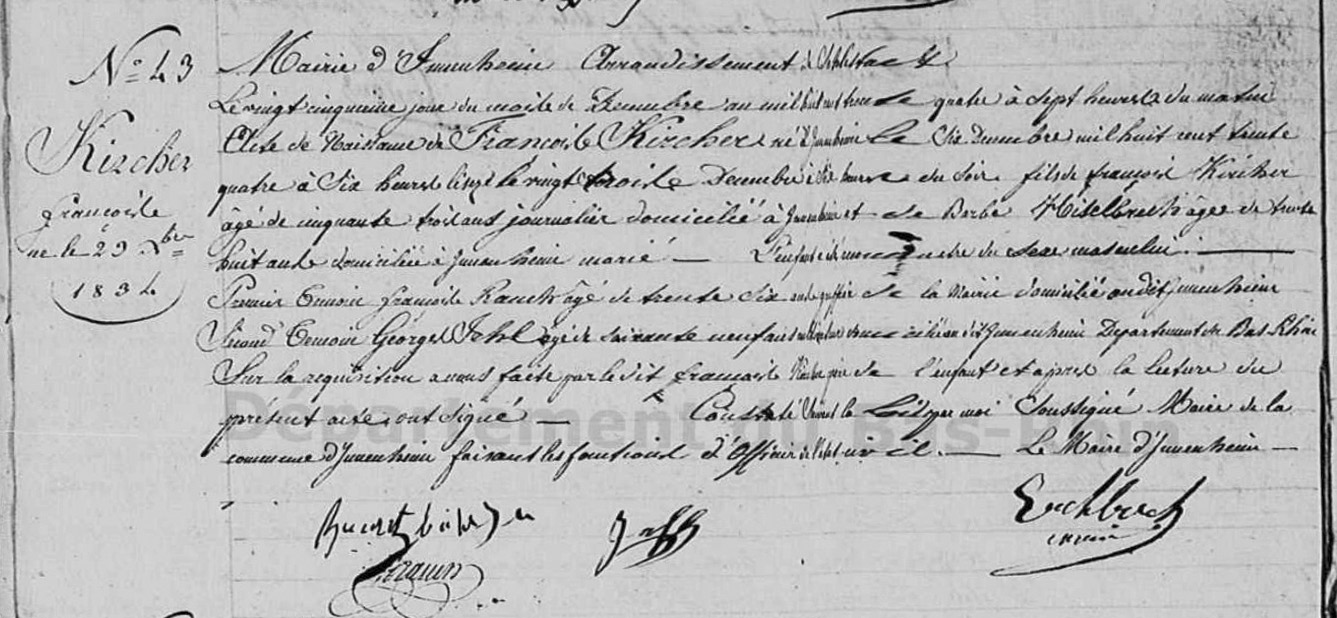 No 43
Kircher
françois
né le 23 Xbre
1834
Mairie d'Innenheim Arrondissement de Schlestadt
Le vingt cinquième jour du mois de Décembre an mil huit cent trente quatre à Sept heures du matin
Acte de Naissance de François Kircher né d'Innenheim Le Six Decembre mil huit cent trente
quatre à Six heures le vingt trois Decembre à Six heures du Soir fils de françois Kircher
âgé de cinquante trois ans journalier domicilié à Innenheim et de Barbe âgée de trente
huit ans domiciliée à Innenheim marié — L'enfant a été reconnu être du Sexe masculin. —
Premier Temoin françois âgé de trente Six ans greffier de la Mairie domicilié audit Innenheim
Second Temoin Georges Jehl âgé de soixante neuf ans domicilié audit Innenheim Departement du Bas-Rhin
Sur la requisition a nous faite par le dit françois Kircher père de l'enfant et apres la Lecture du
présent acte, ont Signé — Constaté Suivant la Loi par moi Soussigné Maire de la
commune d'Innenheim faisant les fonctions d'Officier de l'état civil. — Le Maire d'Innenheim —
maire
Département du Bas-Rhin